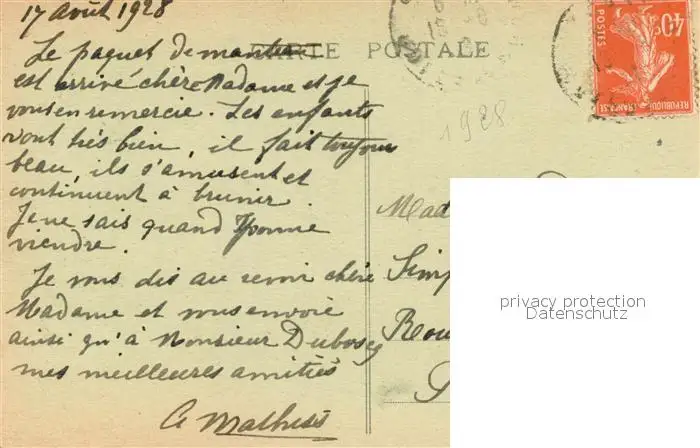 17 août 1928
CARTE POSTALE
Le paquet de
est arrivé chère Madame et je
vous en remercie. Les enfants
vont très bien, il fait toujours
beau, ils s'amusent et
continuent à brunir.
Je ne sais quand Yvonne
viendra.
Je vous dis au revoir chère
Madame et vous envoie
ainsi qu'à Monsieur Duboscq
mes meilleures amitiés
1928
Mad
Simp
Rou
40c
POSTES
REPUBLIQUE
FRANCAISE
privacy protection
Datenschutz